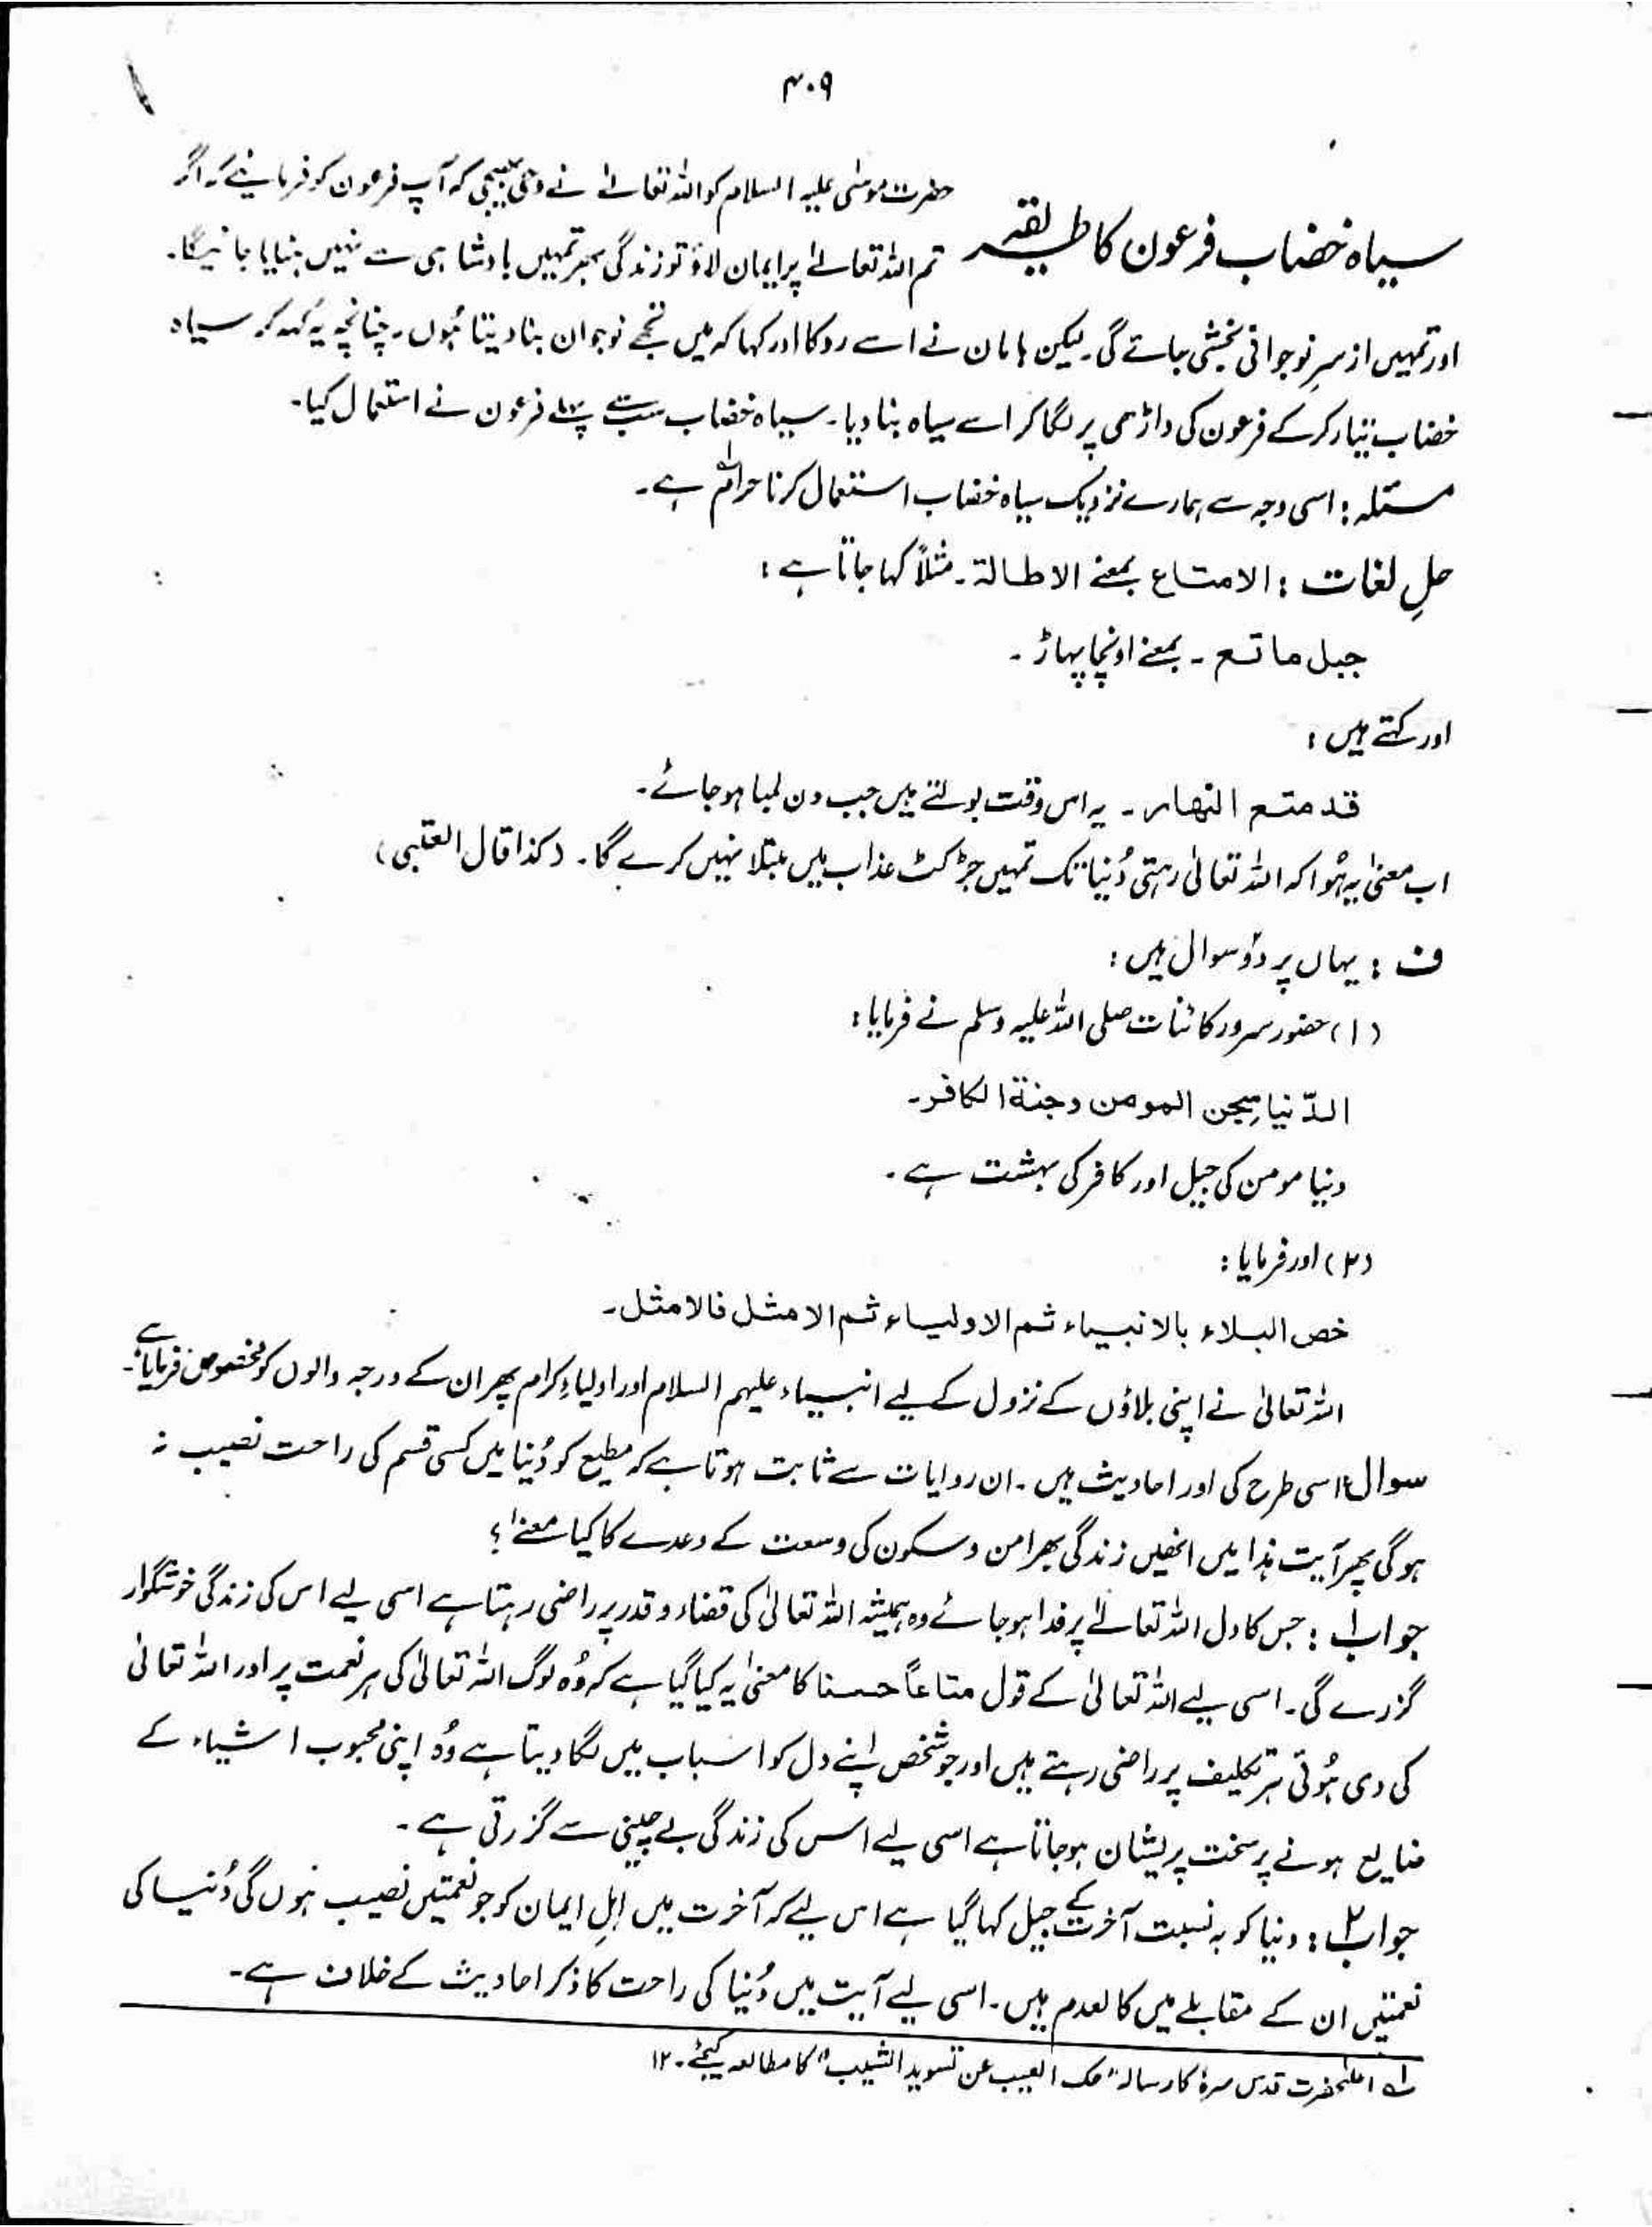 ۴۰۹
سیاہ خضاب فرعون کا طریقہ
حضرت موسٰی علیہ السلام کو اللہ تعالےٰ نے وحی بھیجی کہ آپ فرعون کو فرمائیے کہ اگر
تم اللہ تعالےٰ پر ایمان لاؤ تو زندگی بھر تمہیں بادشاہی سے نہیں ہٹایا جائیگا۔
اور تمہیں از سرِ نو جوانی بخشی جائے گی۔ لیکن ہامان نے اسے روکا اور کہا کہ میں تجھے نوجوان بنا دیتا ہُوں۔ چنانچہ یہ کہہ کر سیاہ
خضاب تیار کر کے فرعون کی داڑھی پر لگا کر اسے سیاہ بنا دیا۔ سیاہ خضاب سب سے پہلے فرعون نے استعمال کیا۔
مسئلہ : اسی وجہ سے ہمارے نزدیک سیاہ خضاب استعمال کرنا حرام لہ ہے۔
حلِ لغات : الامتاع بمعنے الاطالۃ۔ مثلاً کہا جاتا ہے :
جبل ماتع ۔ بمعنے اونچا پہاڑ ۔
اور کہتے ہیں :
قد متع النهار ۔ یہ اس وقت بولتے ہیں جب دن لمبا ہو جائے۔
اب معنیٰ یہ ہُوا کہ اللہ تعالیٰ رہتی دُنیا تک تمہیں جڑ کٹ عذاب میں مبتلا نہیں کرے گا۔ (کذا قال العتبی)
ف : یہاں پر دو سوال ہیں :
(۱) حضور سرور کائنات صلی اللہ علیہ وسلم نے فرمایا :
الدّنیا سِجن المومن وجنۃ الکافر۔
دنیا مومن کی جیل اور کافر کی بہشت ہے ۔
(۲) اور فرمایا :
خص البلاء بالانبیاء ثم الاولیاء ثم الامثل فالامثل۔
اللہ تعالیٰ نے اپنی بلاؤں کے نزول کے لیے انبیاء علیہم السلام اور اولیاءِ کرام پھر ان کے درجہ والوں کو مخصوص فرمایا ہے۔
سوال : اسی طرح کی اور احادیث ہیں ۔ ان روایات سے ثابت ہوتا ہے کہ مطیع کو دُنیا میں کسی قسم کی راحت نصیب نہ
ہو گی پھر آیت ہٰذا میں انھیں زندگی بھر امن و سکون کی وسعت کے وعدے کا کیا معنےٰ ؟
جواب ۱ : جس کا دل اللہ تعالےٰ پر فدا ہو جائے وہ ہمیشہ اللہ تعالیٰ کی قضاء و قدر پر راضی رہتا ہے اسی لیے اس کی زندگی خوشگوار
گزرے گی۔ اسی لیے اللہ تعالیٰ کے قول متاعاً حسنا کا معنیٰ یہ کیا گیا ہے کہ وُہ لوگ اللہ تعالیٰ کی ہر نعمت پر اور اللہ تعالیٰ
کی دی ہُوئی ہر تکلیف پر راضی رہتے ہیں اور جو شخص اپنے دل کو اسباب میں لگا دیتا ہے وُہ اپنی محبوب اشیاء کے
ضایع ہونے پر سخت پریشان ہو جاتا ہے اسی لیے اس کی زندگی بے چینی سے گزرتی ہے ۔
جواب ۲ : دنیا کو بہ نسبت آخرت کے جیل کہا گیا ہے اس لیے کہ آخرت میں اہلِ ایمان کو جو نعمتیں نصیب ہوں گی دُنیا کی
نعمتیں ان کے مقابلے میں کالعدم ہیں ۔ اسی لیے آیت میں دُنیا کی راحت کا ذکر احادیث کے خلاف ہے۔
لہ اعلٰحضرت قدس سرہٗ کا رسالہ "حک العیب عن تسوید الشیب" کا مطالعہ کیجئے۔ ۱۲